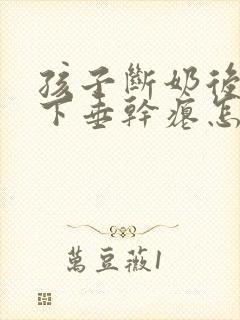 孩子斷奶後
下垂幹癟怎
萬豆薇1